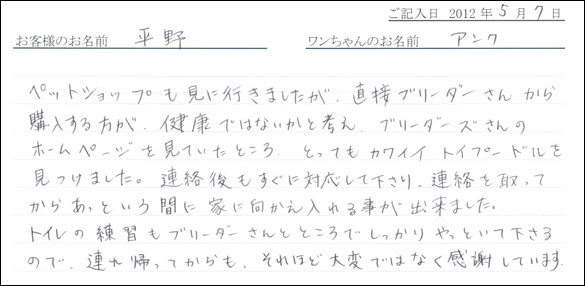 ご記入日 2012年5月7日
お客様のお名前 平野 ワンちゃんのお名前 アンク
ペットショップも見に行きましたが、直接ブリーダーさんから
購入する方が、健康ではないかと考え、ブリーダーズさんの
ホームページを見ていたところ、とってもカワイイトイプードルを
見つけました。連絡後もすぐに対応して下さり、連絡を取って
からあっという間に家に向かえ入れる事が出来ました。
トイレの練習もブリーダーさんとところでしっかりやっといて下さる
ので、連れ帰ってからも、それほど大変ではなく感謝しています。